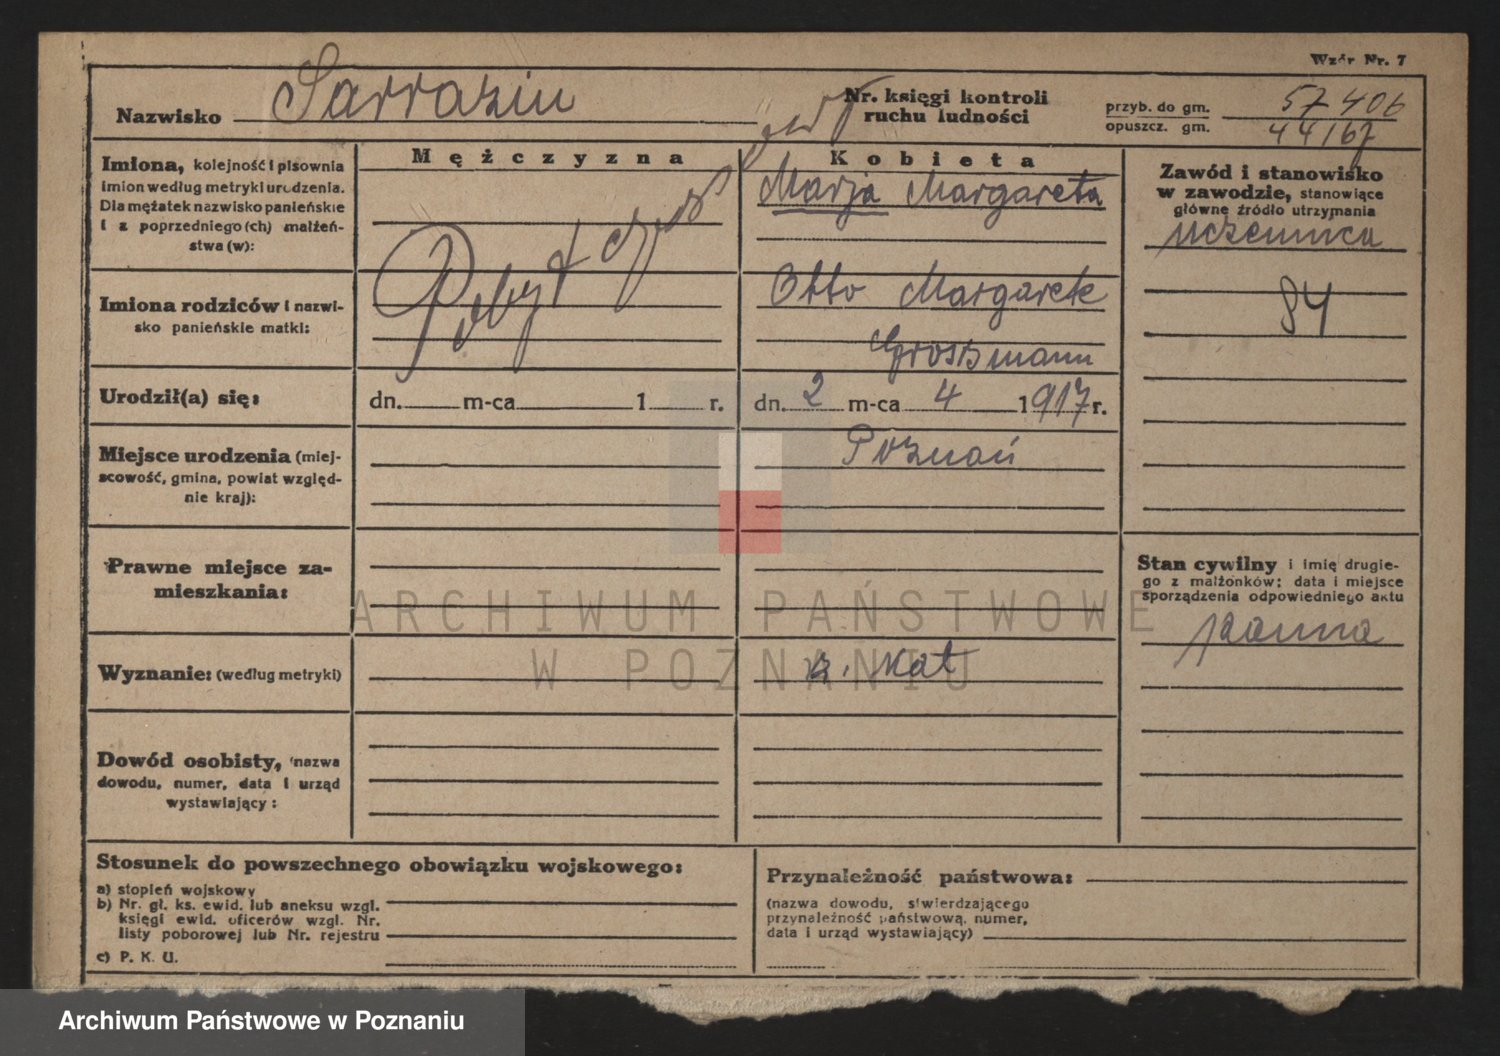 Wzór Nr. 7
Nazwisko Sarrazin
Nr. księgi kontroli
ruchu ludności
przyb. do gm. 57406
opuszcz. gm. 44167
Imiona, kolejność i pisownia
imion według metryki urodzenia.
Dla mężatek nazwisko panieńskie
i z poprzedniego (ch) małżeń-
stwa (w):
Mężczyzna
Kobieta
Marja Margareta
Zawód i stanowisko
w zawodzie, stanowiące
główne źródło utrzymania
uczennica
84
Pobyt czasowy
Imiona rodziców i nazwi-
sko panieńskie matki:
Otto Margarete
Grossmann
Urodził(a) się:
dn. m-ca 1 r.
dn. 2 m-ca 4 1917 r.
Miejsce urodzenia (miej-
scowość, gmina, powiat względ-
nie kraj):
Poznań
Prawne miejsce za-
mieszkania:
Stan cywilny i imię drugie-
go z małżonków; data i miejsce
sporządzenia odpowiedniego aktu
panna
ARCHIWUM PAŃSTWOWE
W POZNANIU
Wyznanie: (według metryki)
rz. kat
Dowód osobisty, nazwa
dowodu, numer, data i urząd
wystawiający:
Stosunek do powszechnego obowiązku wojskowego:
a) stopień wojskowy
b) Nr. gł. ks. ewid. lub aneksu wzgl.
księgi ewid. oficerów wzgl. Nr.
listy poborowej lub Nr. rejestru
c) P. K. U.
Przynależność państwowa:
(nazwa dowodu, stwierdzającego
przynależność państwową, numer,
data i urząd wystawiający)
Archiwum Państwowe w Poznaniu